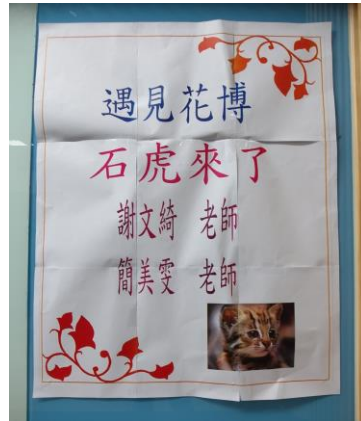 遇見花博
石虎來了
謝文綺 老師
簡美雯 老師